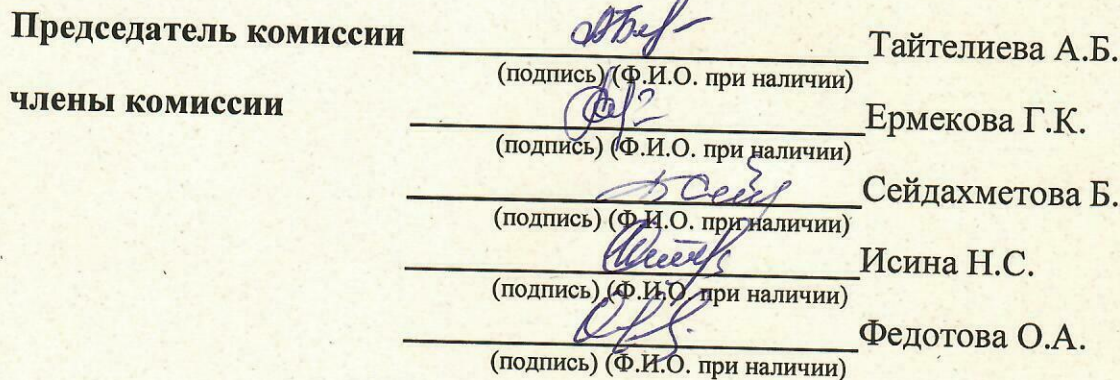 Председатель комиссии Тайтелиева А.Б.
(подпись) (Ф.И.О. при наличии)
члены комиссии Ермекова Г.К.
(подпись) (Ф.И.О. при наличии)
Сейдахметова Б.
(подпись) (Ф.И.О. при наличии)
Исина Н.С.
(подпись) (Ф.И.О. при наличии)
Федотова О.А.
(подпись) (Ф.И.О. при наличии)